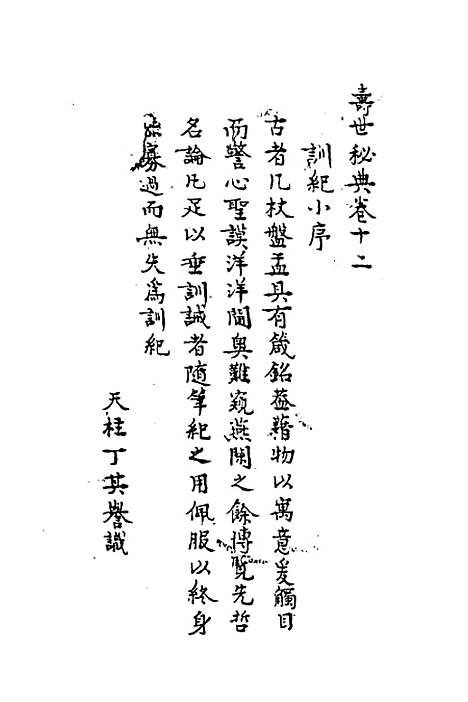 壽世秘典卷十二
訓紀小序
古者几杖盤盂具有箴銘葢藉物以寓意爰觸目
而警心聖謨洋洋閫奧難窺燕閒之餘博覧先哲
名論凡足以垂訓誡者隨筆紀之用佩服以終身
庶寡過而無失爲訓紀
天柱丁其譽識